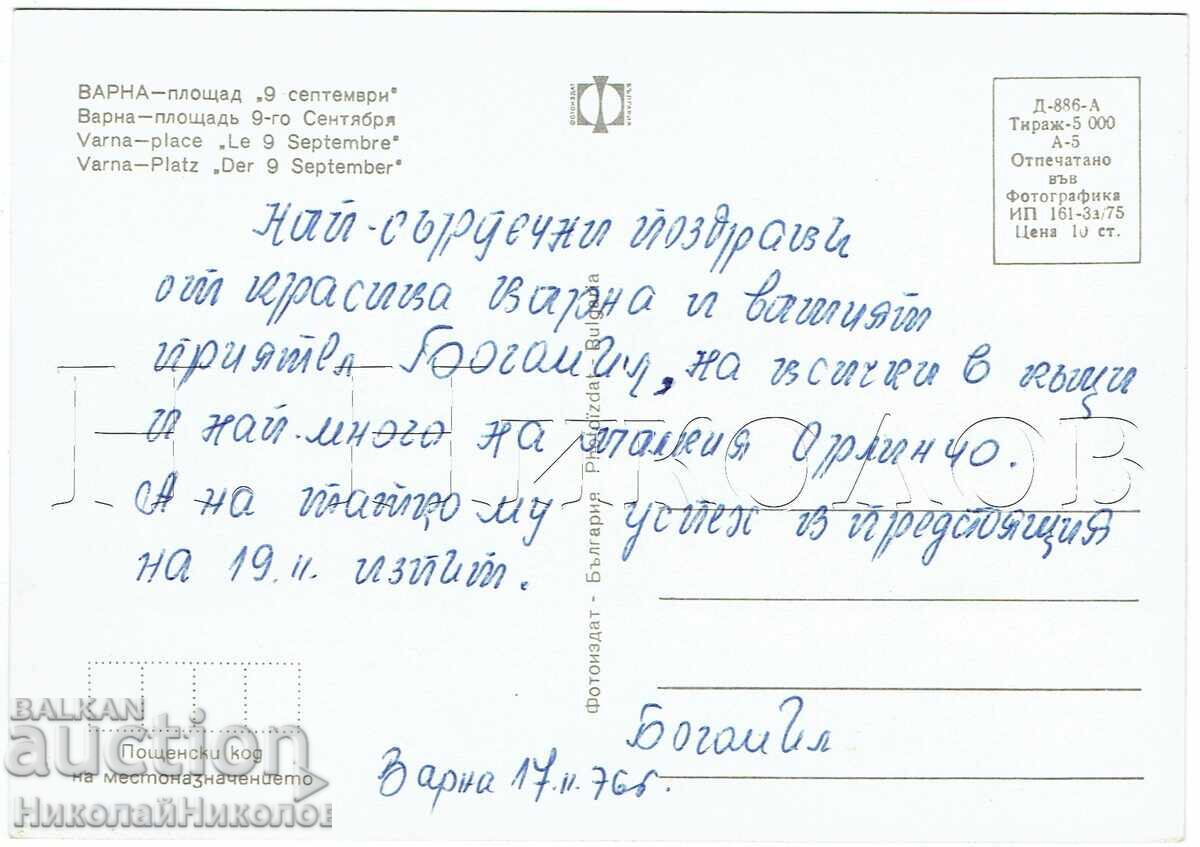 ВАРНА—площад „9 септември"
Варна—площадь 9-го Сентября
Varna—place „Le 9 Septembre"
Varna—Platz „Der 9 September"
ФОТОИЗДАТ
БЪЛГАРИЯ
Д-886-А
Тираж-5 000
А-5
Отпечатано
във
Фотографика
ИП 161-3а/75
Цена 10 ст.
Най-сърдечни поздрави
от красива Варна и вашият
приятел Богомил, на всички в къщи
и най-много на малкия Орлинчо.
А на татко му успех в предстоящия
на 19.II. изпит.
Богомил
Варна 17.II.76г.
Фотоиздат - България - Photoizdat - Bulgaria
Пощенски код
на местоназначението
Н. Николов
BALKAN
auction
НиколайНиколов